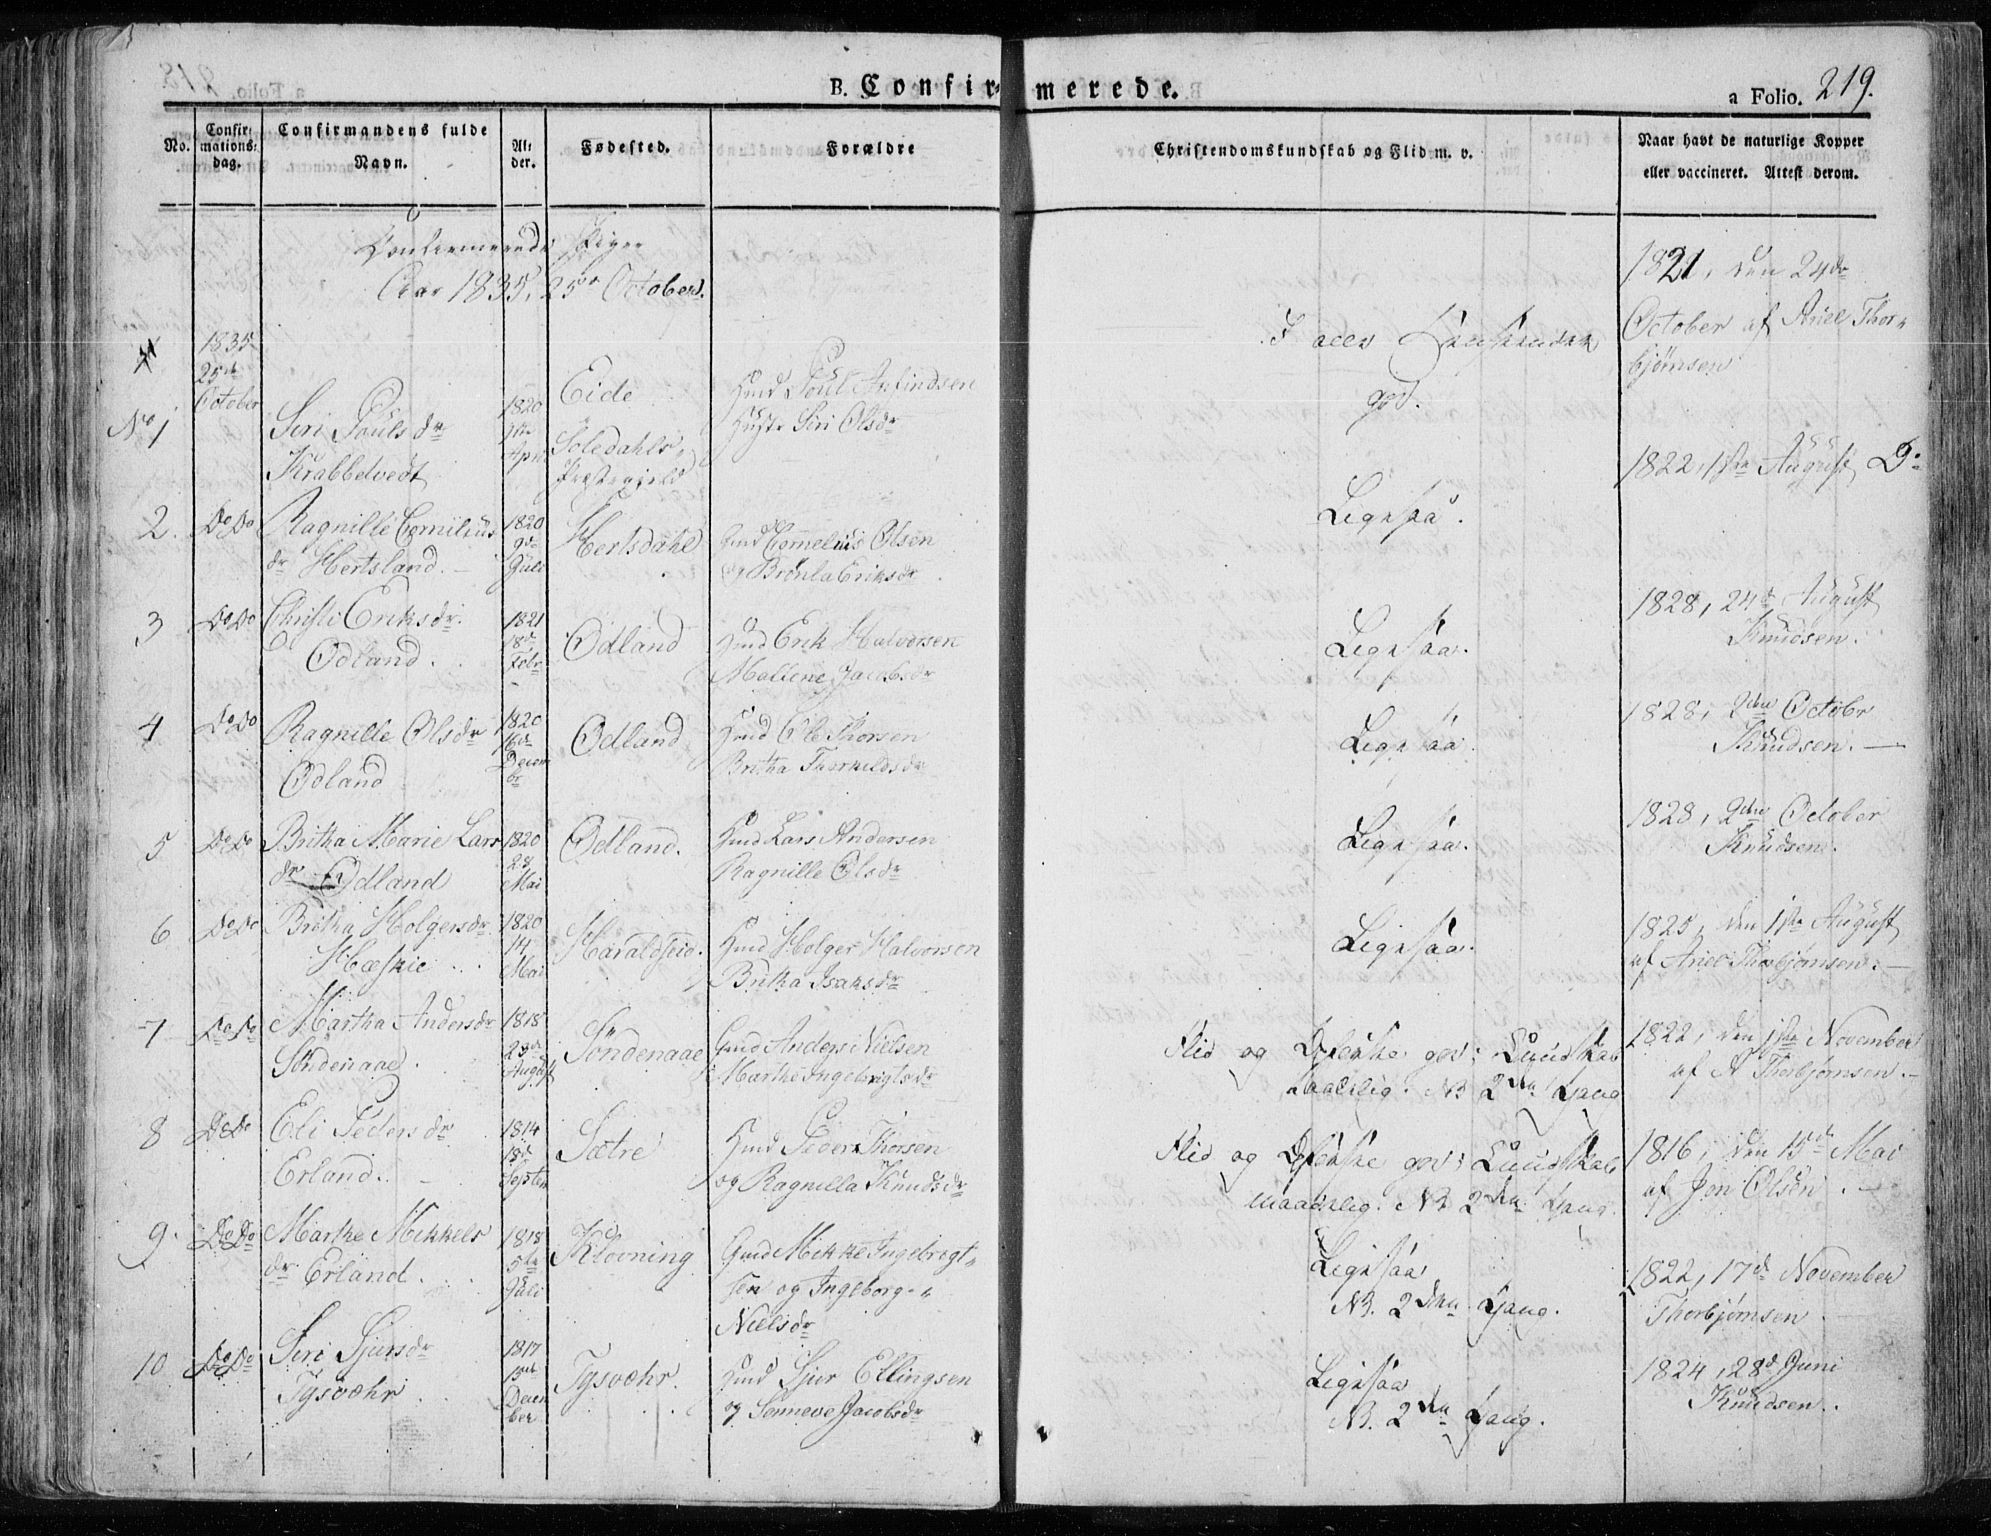 B. Confirmerede.
a Folio. 219.
No.
Confirmationsdag.
Confirmandens fulde Navn.
Alder.
Fødested.
Forældre
Christendomskundskab og Flid m. v.
Naar havt de naturlige Kopper eller vaccineret. Attest derom.
Confirmerede Piger
Aar 1835, 25de October.
No 1
1835 25de October
Siri Poulsdr Krabbetvedt
1820 April
Eide Soledahls Præstegield
Gmd Poul Anfindsen Hustr Siri Olsdr
god.
1821, den 24de October af Ariel Thorbjørnsen
2. Do Do
Ragnille Corniliusdr Hertsland.
1820 9de Juli
Hertsdahl
Gmd Cornelius Olsen og Brønla Eriksdr
Ligesaa.
1822, 1ste August Do
3 Do Do
Christi Eriksdr. Odland.
1821 18de Febr
Odland
Gmd Erik Halvorsen Mallene Jacobsdr
Ligesaa.
1828, 24de August Knudsen.
4 Do Do
Ragnille Olsdr Odland
1820 16de Decembr
Odland
Gmd Ole Thorsen Britha Thorkildsdr
Ligesaa
1828, 2den Octobr Knudsen.
5 Do Do
Britha Marie Larsdr Odland
1820 28 Mai
Odland.
Gmd Lars Andersen Ragnille Olsdr
Ligesaa.
1828, 2den October Knudsen.
6 Do Do
Britha Holgersdr Hæskie
1820 14 Mai
Haraldseid.
Gmd Holger Halvorsen Britha Isaksdr
Ligesaa.
1825, den 1ste August af Ariel Thorbjørnsen.
7 Do Do
Martha Andersdr Søndenaae.
1818 23de August
Søndenaae
Gmd Anders Nielsen Marthe Ingebrigtsdr
Flid og Opførsel god; Kundskab maadelig. NB 2den Gang
1822, den 1ste November af A Thorbjørnsen.
8 Do Do
Eli Pedersdr Erland.
1814 18de Septem
Sætre
Gmd Peder Thorsen og Ragnilla Knudsdr
Flid og Opførsel god; Kundskab maadelig. NB 2den Gang.
1816, den 15de Mai af Jon Olsen.
9. Do Do
Marthe Mikkelsdr Erland.
1818 5te Juli
Klovning
Gmd Mikkel Ingebregtsen og Ingeborg Nielsdr
Ligesaa NB. 2den Gang.
1822, 17de November Thorbjørnsen
10 Do Do
Siri Sjursdr Tysvæhr
1817 December
Tysvæhr.
Gmd Sjur Ellingsen og Sønneve Jacobsdr
Ligesaa NB. 2den Gang.
1824, 28de Juni Knudsen.